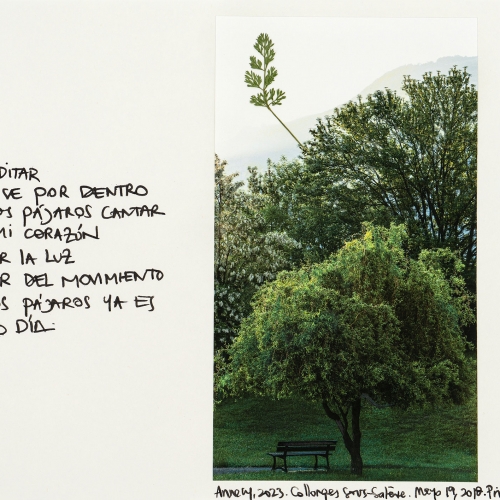 DITAR
SE POR DENTRO
OS PÁJAROS CANTAR
MI CORAZÓN
R LA LUZ
R DEL MOVIMIENTO
OS PÁJAROS YA ES
O DÍA.
Annecy, 2023. Collonges Sous-Salève. Mayo 19, 2018. Pri